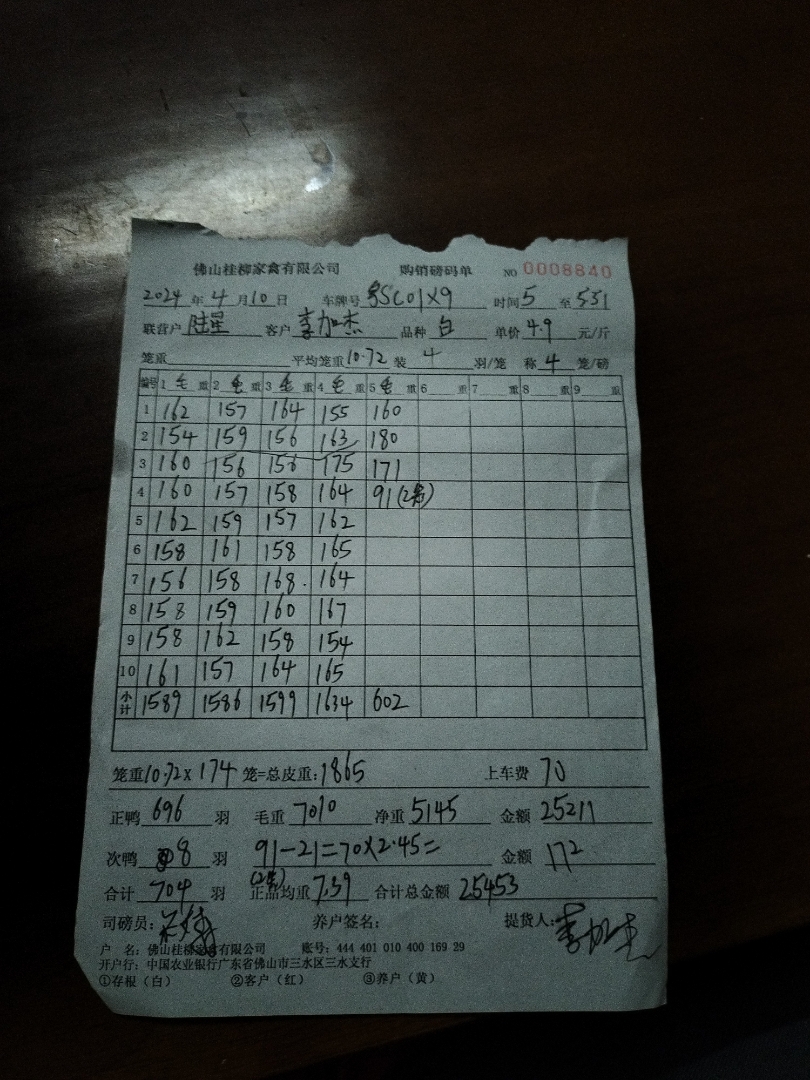 佛山桂柳家禽有限公司 购销磅码单 NO 0008840
2024 年 4 月 10 日 车牌号 SC01X9 时间 5 至 531
联营户 陆星 客户 李加杰 品种 白 单价 4.9 元/斤
笼重 平均笼重 10.72 装 4 羽/笼 称 4 笼/磅
编号 1 毛 重 2 毛 重 3 毛 重 4 毛 重 5 毛 重 6 重 7 重 8 重 9 重
1 162 157 164 155 160
2 154 159 156 163 180
3 160 156 156 175 171
4 160 157 158 164 91(2笼)
5 162 159 157 162
6 158 161 158 165
7 156 158 168 164
8 158 159 160 167
9 158 162 158 154
10 161 157 164 165
小计 1589 1586 1599 1634 602
笼重 10.72 x 174 笼=总皮重: 1865 上车费 70
正鸭 696 羽 毛重 7010 净重 5145 金额 25211
次鸭 8 羽 91-21=70X2.45= 金额 172
(2笼)
合计 704 羽 正品均重 7.39 合计总金额 25453
司磅员: 养户签名: 提货人: 李加杰
户 名: 佛山桂柳家禽有限公司 账号: 444 401 010 400 169 29
开户行: 中国农业银行广东省佛山市三水区三水支行
①存根(白) ②客户(红) ③养户(黄)